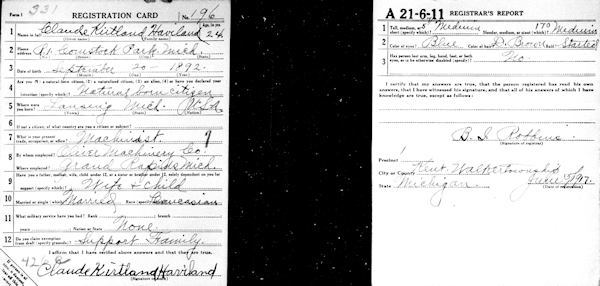 Form 1 331 REGISTRATION CARD No. 196
1 Name in full Claude Kirtland Haviland 24
(Given name) (Family name) Age, in yrs.
2 Home address R1 Comstock Park Mich.
(No.) (Street) (City) (State)
3 Date of birth September 20 1892
(Month) (Day) (Year)
4 Are you (1) a natural-born citizen, (2) a naturalized citizen, (3) an alien, (4) or have you declared your
intention (specify which)? Natural born citizen
5 Where were you born? Lansing Mich. USA
(Town) (State) (Nation)
6 If not a citizen, of what country are you a citizen or subject?
7 What is your present trade, occupation, or office? Machinist 9
8 By whom employed? Machinery Co.
Where employed? Grand Rapids Mich.
9 Have you a father, mother, wife, child under 12, or a sister or brother under 12, solely dependent on you for
support (specify which)? Wife & child
10 Married or single (which)? Married Race (specify which)? Caucasian
11 What military service have you had? Rank branch
years Nation or State None
12 Do you claim exemption from draft (specify grounds)? Support Family.
I affirm that I have verified above answers and that they are true.
Claude Kirtland Haviland
(Signature or mark)
A 21-6-11 REGISTRAR'S REPORT
1 Tall, medium, or short (specify which)? Medium Slender, medium, or stout (which)?
2 Color of eyes? Blue Color of hair? D. Brown Bald?
3 Has person lost arm, leg, hand, foot, or both
eyes, or is he otherwise disabled (specify)? No.
I certify that my answers are true, that the person registered has read his own
answers, that I have witnessed his signature, and that all of his answers of which I have
knowledge are true, except as follows:
B. I. Robbins
(Signature of registrar)
Precinct
City or County Kent Walker township
State Michigan June 5/97.
(Date of registration)